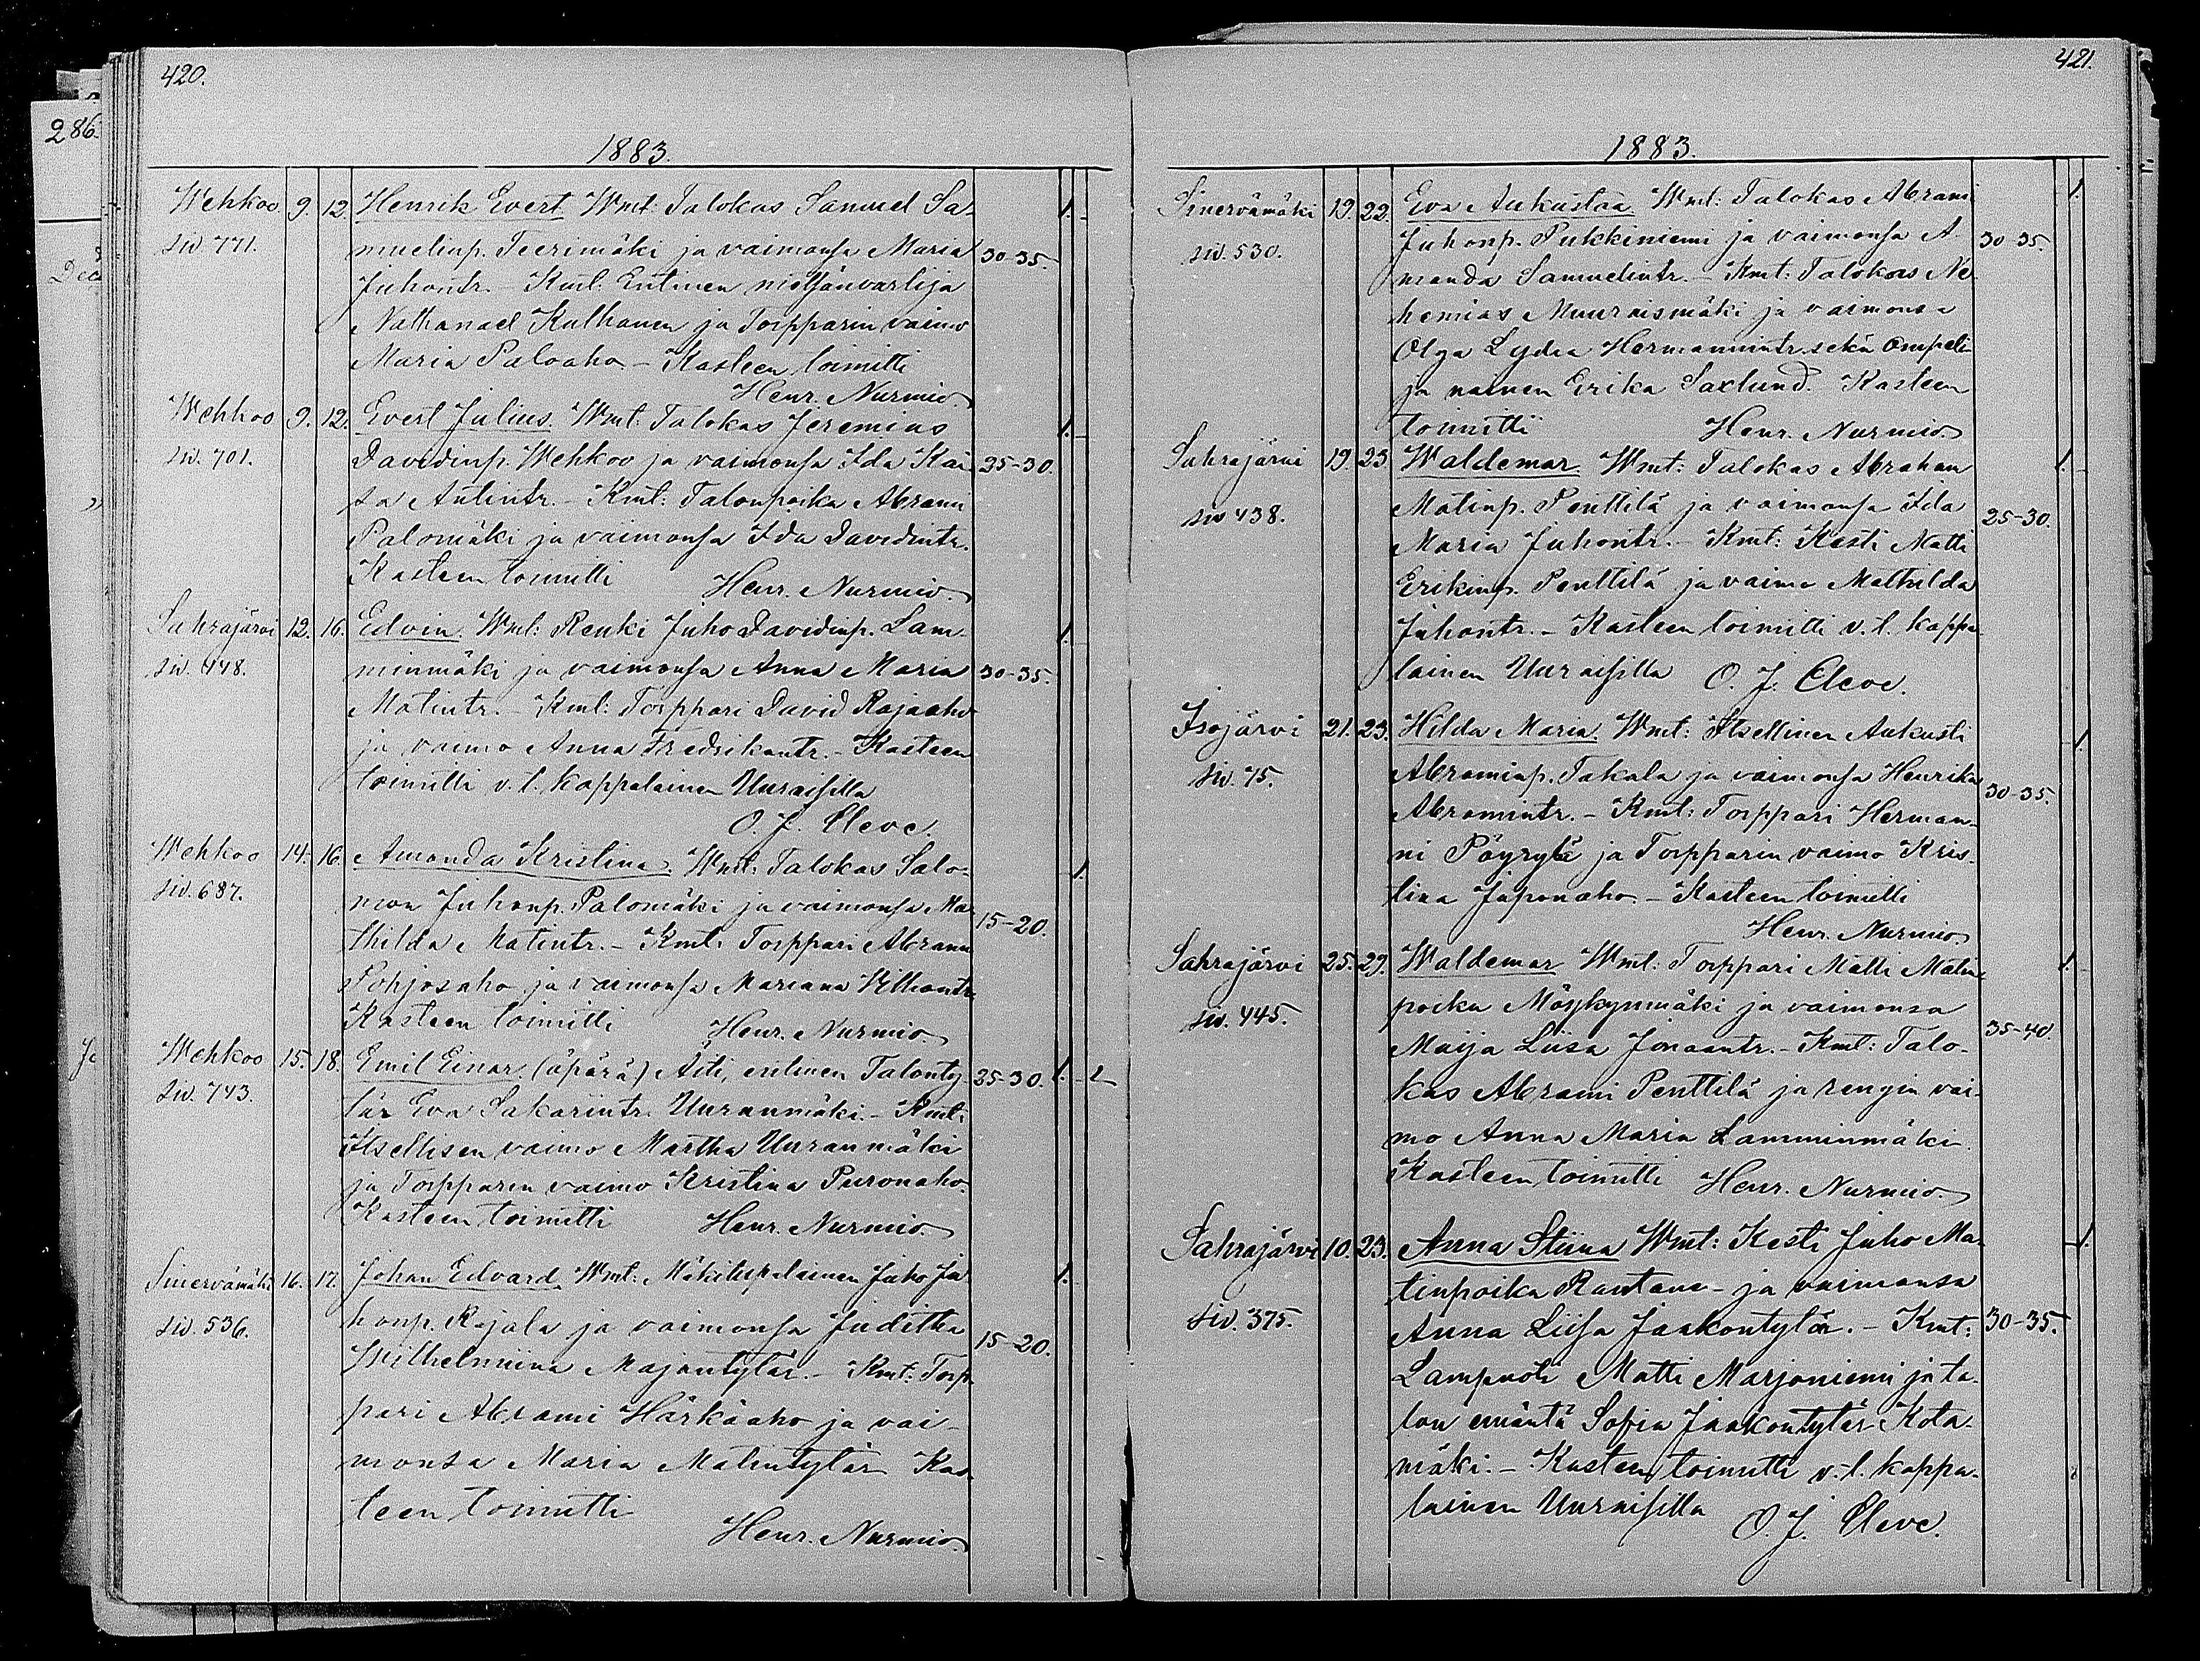 420.
286.
1883.
Wehkoo 9. 12. Henrik Evert Wmt: Talokas Samuel Sa-
siv 771. muelinp. Teerimäki ja vaimonsa Maria 30-35. 1.
Juhontr. - Kmt: Entinen metsänvartija
Nathanael Kulhanen ja Torpparin vaimo
Maria Paloaho - Kasteen toimitti
Henr. Nurmio.
Wehkoo 9. 12. Evert Julius. Wmt: Talokas Jeremias 1.
siv. 701. Davidinp. Wehkoo ja vaimonsa Ida Kai- 25-30.
sa Antintr. - Kmt: Talonpoika Abram
Palomäki ja vaimonsa Ida Davidintr.
Kasteen toimitti Henr. Nurmio.
Sahrajärvi 12. 16. Edvin. Wmt: Renki Juho Davidinp. Lam- 1.
siv. 448. minmäki ja vaimonsa Anna Maria 30-35.
Matintr. - Kmt: Torppari David Rajaaho
ja vaimo Anna Fredrikantr. - Kasteen
toimitti v. t. kappalainen Uuraisilla
O. J. Cleve.
Wehkoo 14. 16. Amanda Kristina. Wmt: Talokas Salo- 1.
siv. 687. mon Juhonp. Palomäki ja vaimonsa Ma- 15-20.
thilda Matintr. - Kmt: Torppari Abram
Pohjosaho ja vaimonsa Mariana
Kasteen toimitti Henr. Nurmio.
Wehkoo 15. 18. Emil Einar. (äpärä) Äiti, entinen Talonty- 25-30. 1.
siv. 743. tär Eva Sakarintr. Uuranmäki. - Kmt:
Itsellisen vaimo Martha Uuranmäki
ja Torpparin vaimo Kristina Puronaho.
Kasteen toimitti Henr. Nurmio.
Sinervämäki 16. 17. Johan Edvard. Wmt: Mäkitupalainen Juho Ju- 1.
siv. 536. honp. Rajala ja vaimonsa Juditha 15-20.
Wilhelmiina Majantytär. - Kmt: Torp-
pari Abrami Härkäaho ja vai-
monsa Maria Matintytär Kas-
teen toimitti
Henr. Nurmio.
421.
1883.
Sinervämäki 19. 22. Eva Aukustaa Wmt: Talokas Abrami 1.
siv. 530. Juhonp. Pukkiniemi ja vaimonsa A- 30-35.
manda Samuelintr. - Kmt: Talokas Ne-
hemias Muuraismäki ja vaimonsa
Olga Lydia Hermannintr. sekä ompeli-
ja nainen Erika Saxlund. Kasteen
toimitti Henr. Nurmio.
Sahrajärvi 19. 23. Waldemar Wmt: Talokas Abraham 1.
siv 438. Matinp. Penttilä ja vaimonsa Ida 25-30.
Maria Juhontr. - Kmt: Kesti Matti
Erikinp. Penttilä ja vaimo Mathilda
Juhontr. - Kasteen toimitti v. t. kappa-
lainen Uuraisilla O. J. Cleve.
Isojärvi 21. 23. Hilda Maria. Wmt: Itsellinen Aukusti 1.
siv. 75. Abraminp. Takala ja vaimonsa Henrika 30-35.
Abramintr. - Kmt: Torppari Herman-
ni Pöyrylä ja Torpparin vaimo Kris-
tina Japonaho. - Kasteen toimitti
Henr. Nurmio.
Sahrajärvi 25. 29. Waldemar Wmt: Torppari Matti Matin- 1.
siv. 445. poika Möykynmäki ja vaimonsa 35-40.
Maija Liisa Jonaantr. - Kmt: Talo-
kas Abrami Penttilä ja rengin vai-
mo Anna Maria Lamminmäki.
Kasteen toimitti Henr. Nurmio.
Sahrajärvi 10. 23. Anna Stiina Wmt: Kesti Juho Ma- 1.
siv. 375. tinpoika Rautano - ja vaimonsa
Anna Liisa Jaakontytär. - Kmt: 30-35.
Lampuoti Matti Marjoniemi ja ta-
lon emäntä Sofia Jaakontytär Kota-
mäki. - Kasteen toimitti v. t. kappa-
lainen Uuraisilla O. J. Cleve.